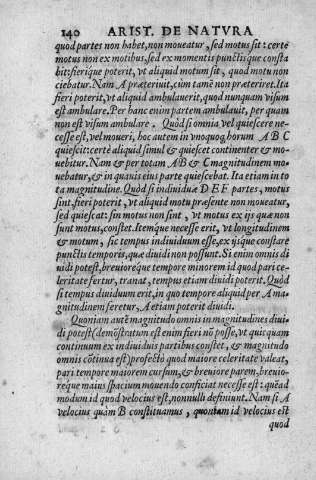 140 ARIST. DE NATVRA
quod partes non habet, non moueatur, sed motus sit: certè
motus non ex motibus, sed ex momentis punctisque consta
bit: fierique poterit, vt aliquid motum sit, quod motu non
ciebatur. Nam A præteriuit, cùm tamē non præteriret. Ita
fieri poterit, vt aliquid ambulauerit, quod nunquam visum
est ambulare. Per hanc enim partem ambulauit, per quam
non est visum ambulare. Quòd si omnia vel quiescere ne-
cesse est, vel moueri, hoc autem in vnoquoq; horum A B C
quiescit: certè aliquid simul & quiescet continenter & mo-
uebitur. Nam & per totam A B & C magnitudinem mo-
uebatur, & in quauis eius parte quiescebat. Ita etiam in to
ta magnitudine. Quòd si indiuiduæ D E F partes, motus
sint, fieri poterit, vt aliquid motu præsente non moueatur,
sed quiescat: sin motus non sint, vt motus ex ijs quæ non
sunt motus, constet. Itemque necesse erit, vt longitudinem
& motum, sic tempus indiuiduum esse, ex ijsque constare
punctis temporis, quæ diuidi non possunt. Si enim omnis di
uidi potest, breuioreque tempore minorem id quod pari ce-
leritate fertur, tranat, tempus etiam diuidi poterit. Quòd
si tempus diuiduum erit, in quo tempore aliquid per A ma-
gnitudinem feretur, A etiam poterit diuidi.
Quoniam autē magnitudo omnis in magnitudines diui-
di potest (demōstratum est enim fieri nō posse, vt quicquam
continuum ex indiuiduis partibus constet, & magnitudo
omnis cōtinua est) profectò quod maiore celeritate valeat,
pari tempore maiorem cursum, & breuiore parem, breuio-
reque maius spacium mouendo conficiat necesse est: quēad
modum id quod velocius est, nonnulli definiunt. Nam si A
velocius quàm B constituamus, quoniam id velocius est
quod